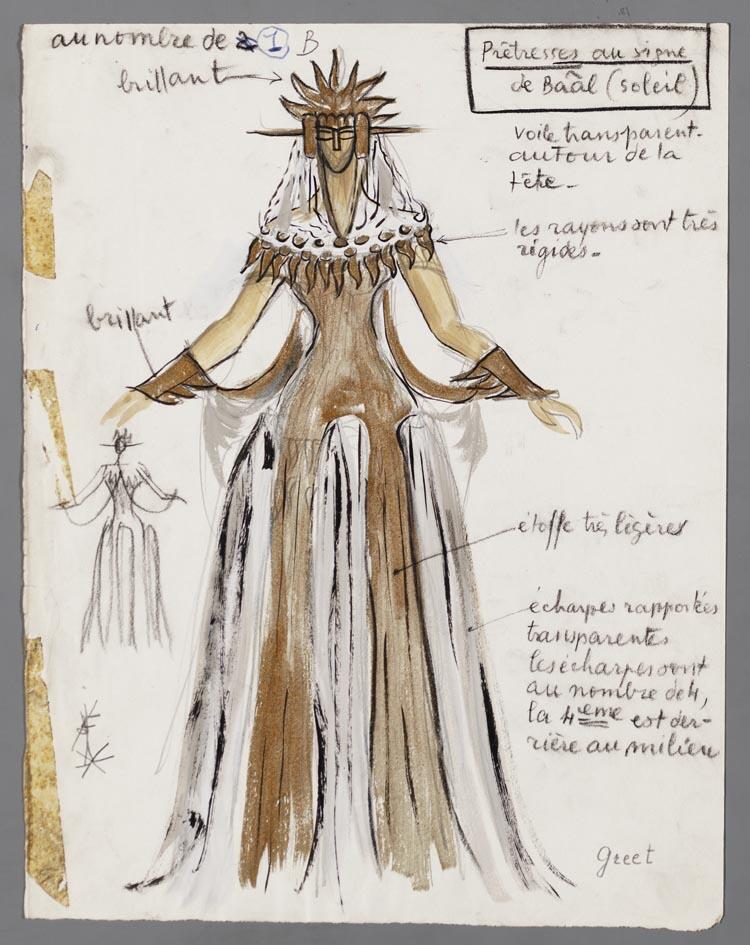 au nombre de 2 1 B
brillant
Prêtresses au signe
de Baâl (soleil)
voile transparent
autour de la
tête -
les rayons sont très
rigides -
brillant
étoffe très légères
écharpes rapportées
transparentes
les écharpes sont
au nombre de 4,
la 4eme est der-
rière au milieu
greet